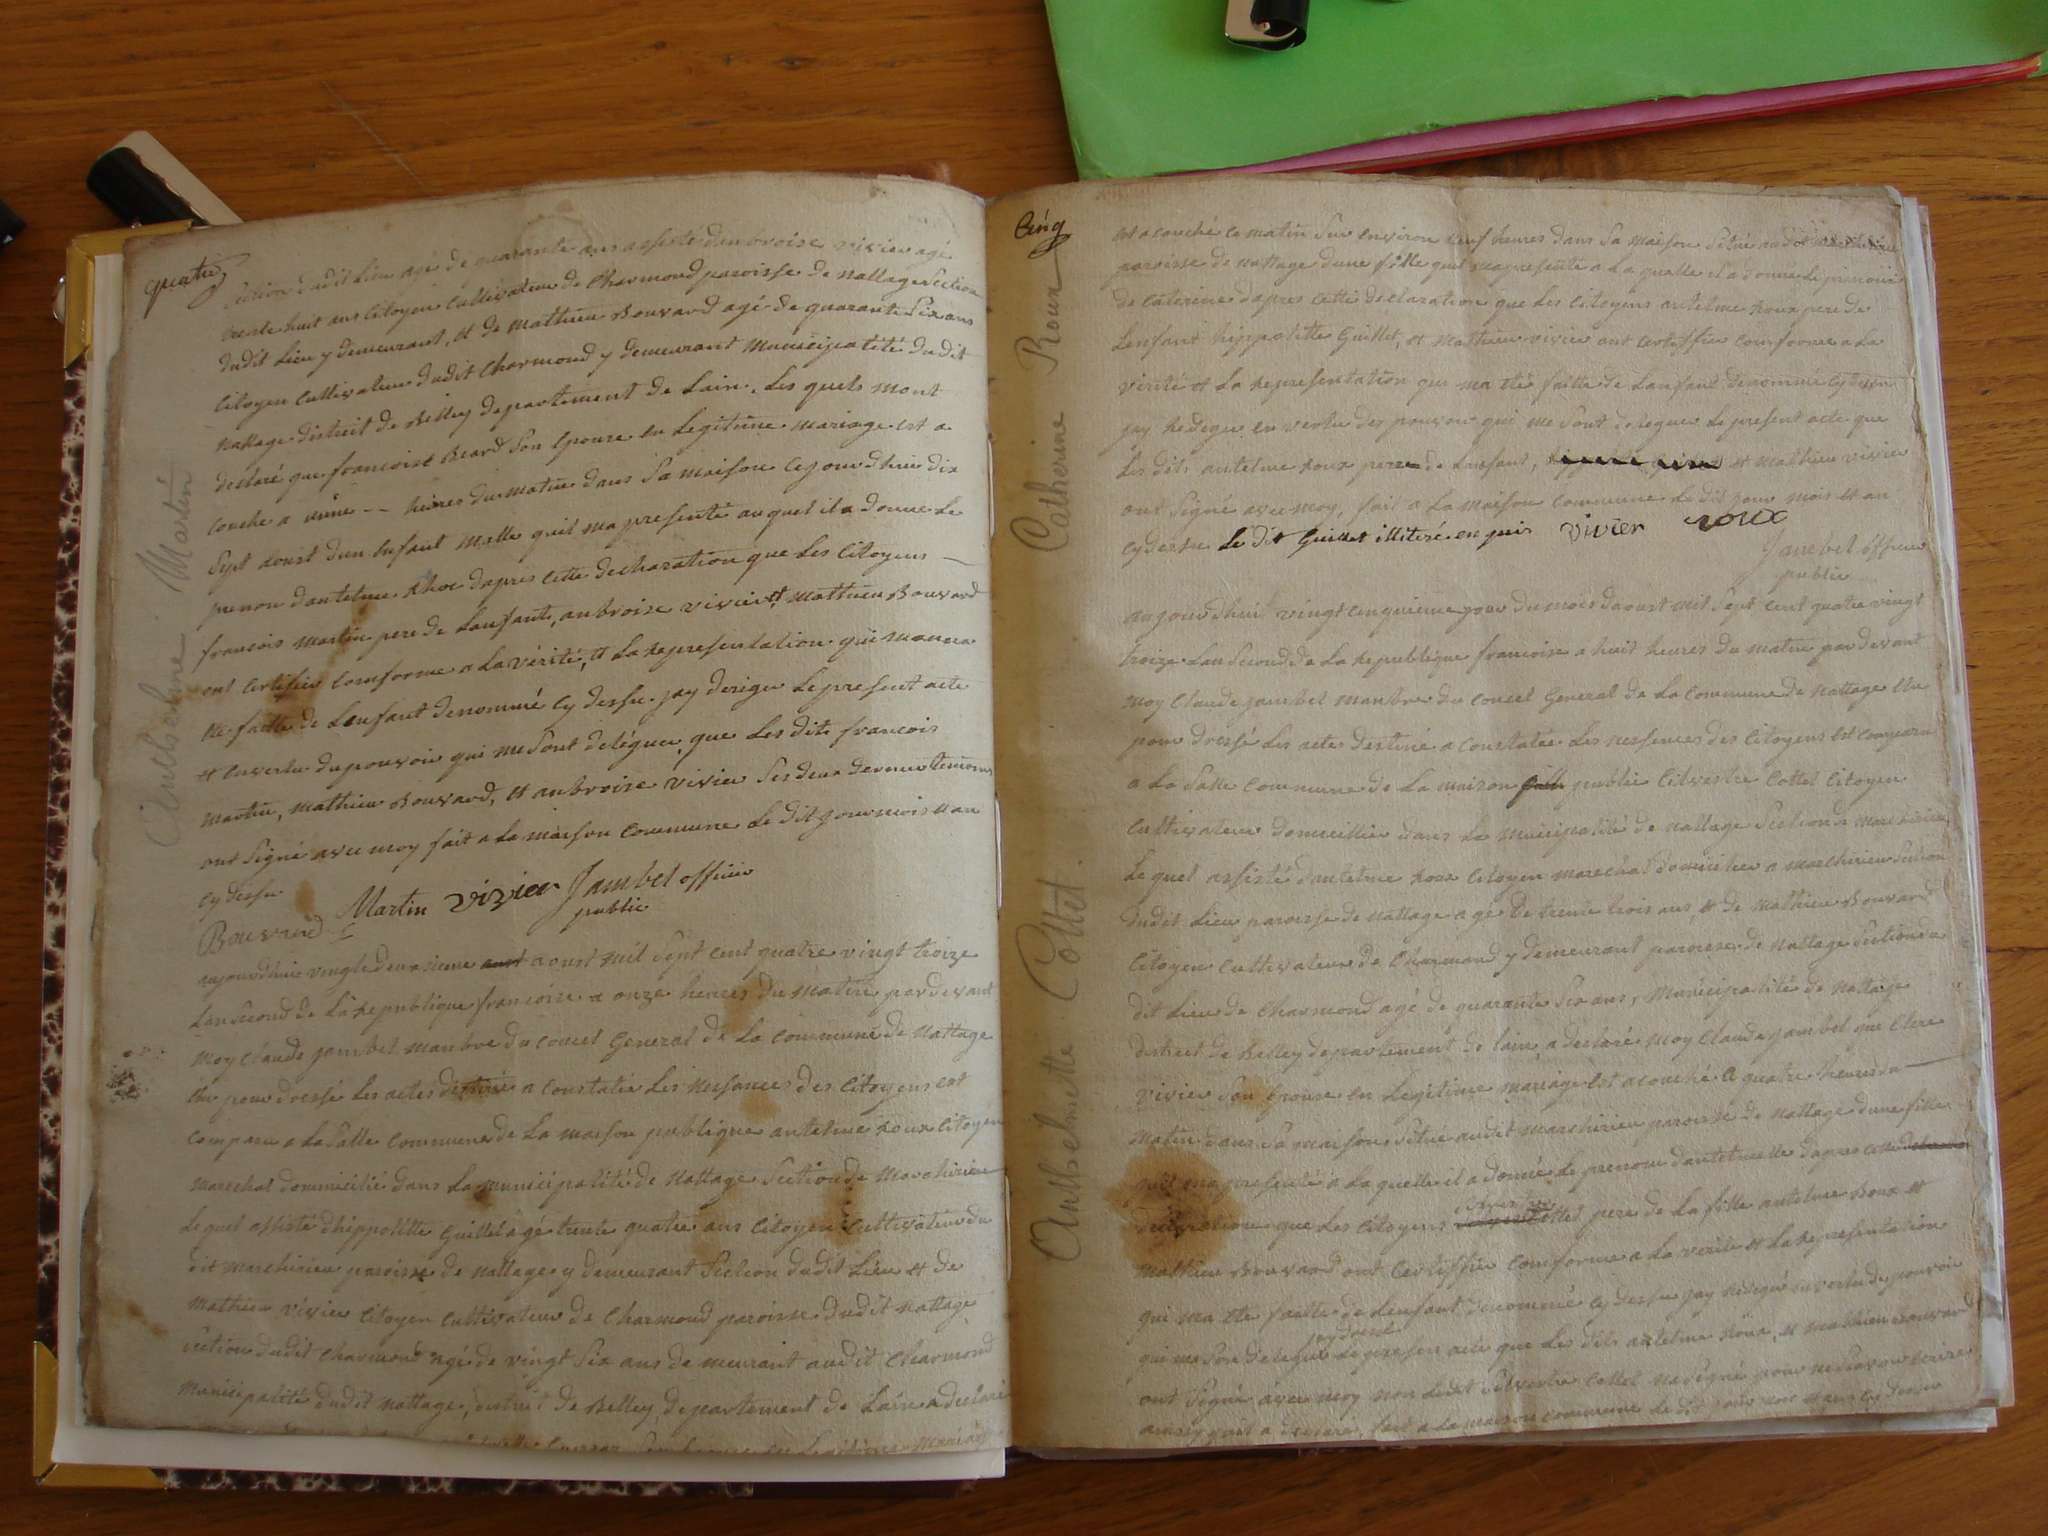 quatre
dudit Lieu agé de quarante ans assisté d'enbroise vivier agé
trente huit ans Citoyen Cultivateur de Charmond paroisse de nattage Section
dudit Lieu y demeurant, et de Mathieu Bouvard agé de quarante Six ans
Citoyen Cultivateur dudit Charmond y demeurant Municipatité dudit
nattage district de Belley departement de Lain. Les quels mont
declaré que francoise Beard Son Epouse en Legitime mariage est a
couche a heures du matin dans Sa maison cejourdhui dix
Sept aoust dun Enfant malle quil ma presenté auquel il a donne Le
prenon dantelme dapres cette declaration que Les Citoyens
francois Martin pere de Lanfant, anbroise vivier et Mathieu Bouvard
ont Certifier Comforme a La vérité, et La Representation qui
été faitte de Lenfant denommé Cy dessu jay Le present acte
et Envertu du pouvoir qui me Sont deléguer, que Les dits francois
Martin, Mathieu Bouvard, et anbroise vivier Ses deux
ont Signé avec moy fait a La maison Commune Le dit jour mois et an
Cy dessu
Martin vivier Jambel officier
public
Bouvard
Anthelme Martin
aujourdhui vingt deuxieme aoust mil Sept Cent quatre vingt troize
Lan Second de La Republique francoise a onze heures du matin pardevant
moy Claude jambel manbre du Conset General de La Commune de Nattage
Elu pour dressé Les actes destiné a Constater Les nessances des Citoyens est
Comparu a La Salle Commune de La maison publique antelme Roux Citoyen
marechal dommicilié dans La municipalité de Nattage Section de Marchirieu
Lequel assisté dhippolitte Guillet agé trente quatre ans Citoyen Cultivateur du
dit marchirieu paroisse de nattage y demeurant Section dudit Lieu et de
Mathieu vivier Citoyen Cultivateur de Charmond paroisse dudit nattage
Section dudit Charmond agé de vingt Six ans demeurant audit Charmond
Municipalité dudit nattage, district de Belley, departement de Lain a declaré
Cinq
est acouché Ce matin Sur Environ neuf heures dans Sa maison Scitué audit
paroisse de nattage dune fille quil mapresenté a La quelle il a donné Le prenom
de Caterine dapres Cette declaration que Les Citoyens antelme Roux pere de
Lenfant hippolitte Guillet, et Mathieu vivier ont Certiffier Comforme a La
vérité et La Representation qui ma été faitte de Lanfant denommé
jay Rediger en vertu des pouvoir qui me Sont deleguer Le present acte que
Les dits antelme Roux pere de Lenfant, et Mathieu vivier
ont Signé avec moy, fait a La maison Commune Le dit jour mois et an
Cydessu Le dit Guillet illiteré vivier roux
Jambel officier
public
Catherine Roux
aujourdhuit vingt Cinquieme jour du mois daoust mil Sept Cent quatre vingt
troize Lan Second de La Republique francoise a huit heures du matin pardevant
moy Claude jambel manbre du Conset General de La Commune de nattage Elu
pour dressé Les acte destiné a Constater Les nessences des Citoyens est Comparu
a La Salle Commune de La maison public Silvestre Cottet Citoyen
Cultivateur domicillier dans La Municipalité de nattage Section de Marchirieu
Le quel assisté dantelme Roux Citoyen marechal domicilier a Marchirieu Section
dudit Lieu paroisse de nattage agé de trente trois ans, et de Mathieu Bouvard
Citoyen Cultivateur de Charmond y demeurant paroisse de nattage Section du
dit Lieu de Charmond agé de quarante Six ans, Municipalité de nattage
district de Belley departement de Lain, a declaré moy Claude jambel que Clere
vivier Son Epouse en Legitime mariage est acouché a quatre heures du
matin dans Sa maison Scitué audit marchirieu paroisse de nattage dune fille
quil ma presenté a La quelle il a donné Le prenom dantelmette dapres cette
declaration que Les Citoyens Cottet pere de La fille antelme Roux et
Mathieu Bouvard ont Certiffier Comforme a La verite et La Representation
qui ma été faitte de Lenfant denommé Cy dessu jay Redigé en vertu du pouvoir
qui me Sont delegué Le presen acte que Les dits antelme Roux, et Mathieu Bouvard
ont Signé avec moy non Ledit Silvestre Cottet na Signé pour ne Savoir Ecrire
ainsy quil a declaré, fait a La maison Commune Le dit jour mois et an Cy dessu
Anthelmette Cottet